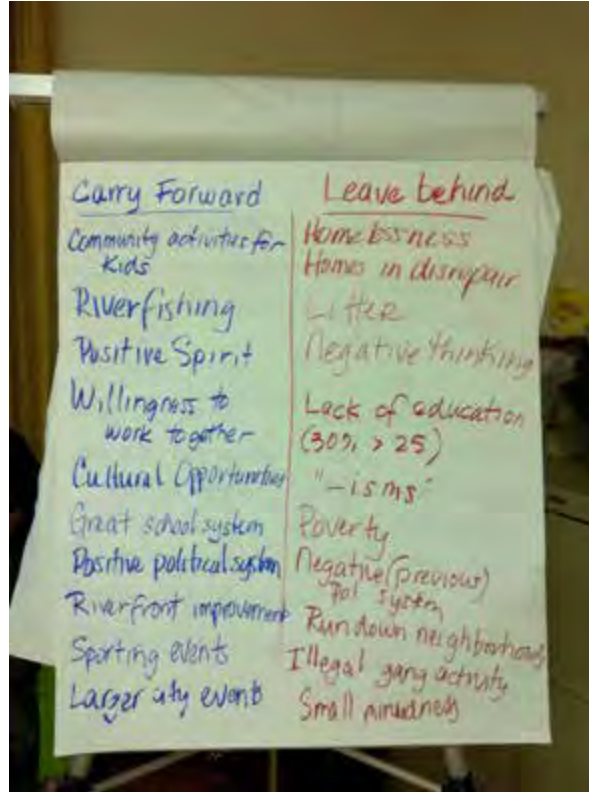 Carry Forward
Community activities for
Kids
Riverfishing
Positive Spirit
Willingness to
work together
Cultural Opportunities
Great school system
Positive political system
Riverfront improvement
Sporting events
Larger city events
Leave behind
Homelessness
Homes in disrepair
Litter
Negative thinking
Lack of education
(30% > 25)
"-isms"
Poverty
Negative (previous)
Pol system
Rundown neighborhoods
Illegal gang activity
Small mindness